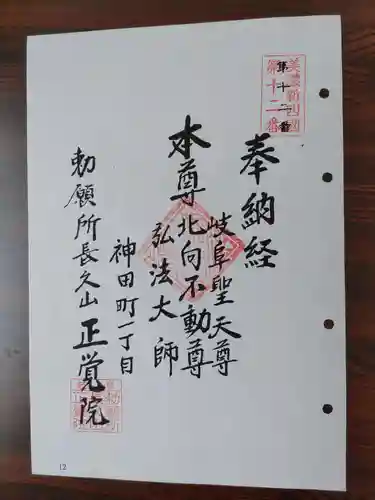 美濃新四国
第十二番
第十二番
奉納経
岐阜聖天尊
本尊北向不動尊
弘法大師
神田町一丁目
勅願所長久山正覚院
12